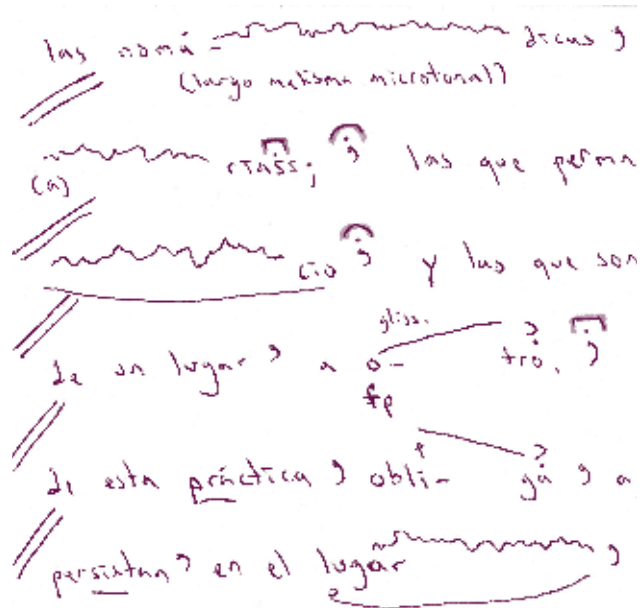 las nomá- dicas ,
(largo melisma microtonal)
(a) ctass; , las que perma
cio , y las que son
gliss.
de un lugar , a o- tro. ,
fp
de esta práctica , obli- gá , a
persistan , en el lugar ,